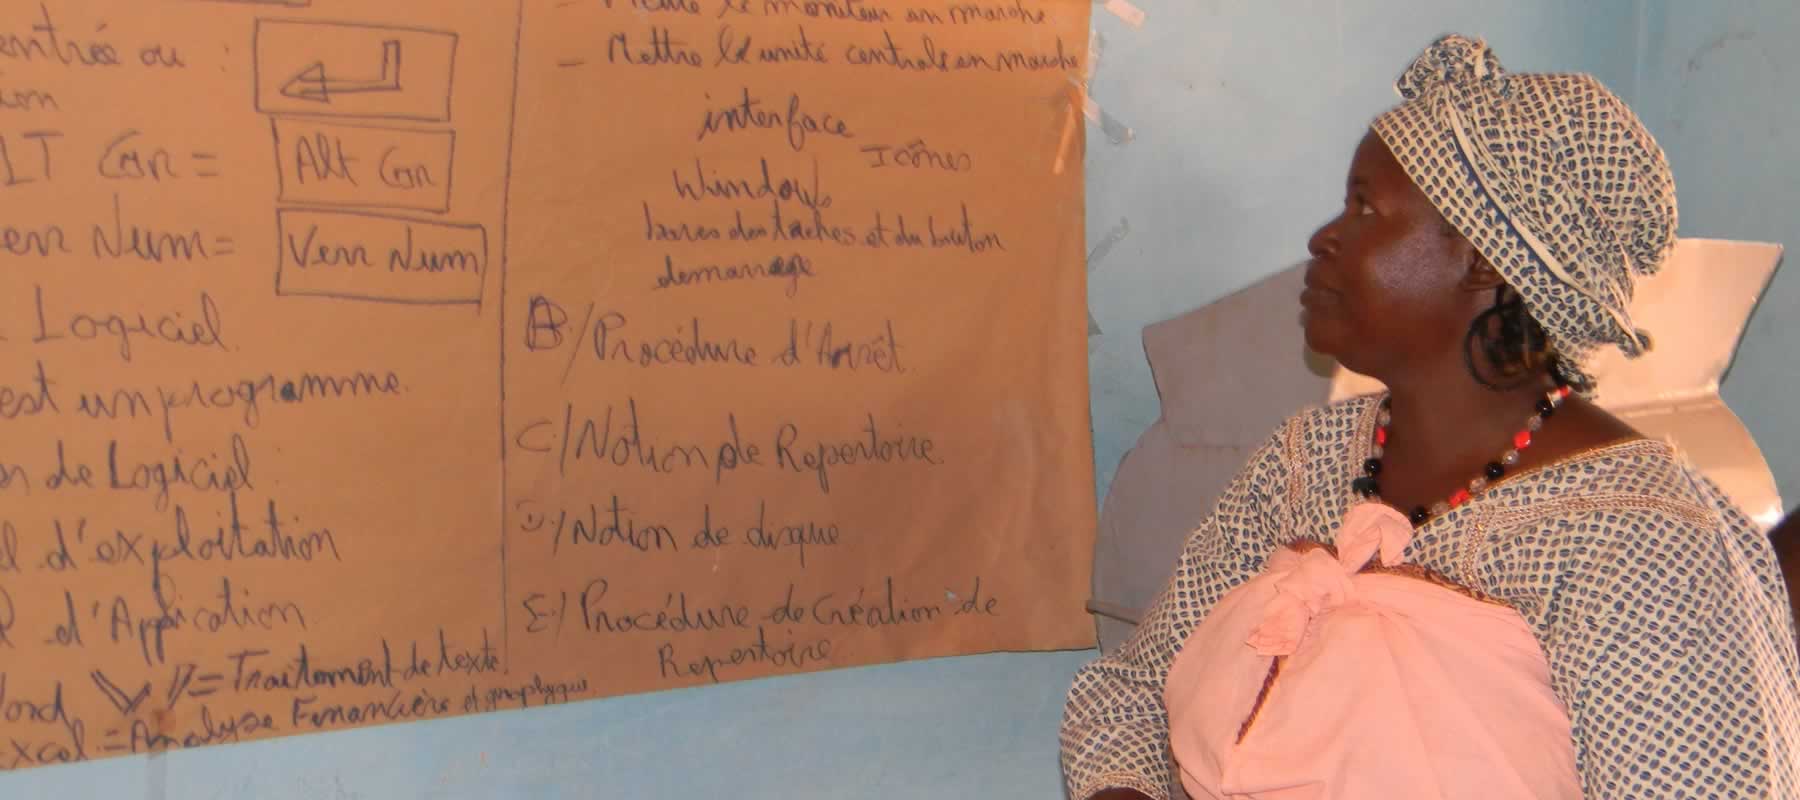 entrée ou :
ion
ALT Gr =
Alt Gr
Verr Num =
Verr Num
Logiciel
est un programme.
de Logiciel
d'exploitation
d'Application
Word = Traitement de texte
Excel = Analyse Financière et graphyque
_ Mettre le moniteur en marche
_ Mettre l'unité centrale en marche
interface
Icônes
Windows
barres des tâches et du bouton
demarrage
B/ Procédure d'Arrêt
C/ Notion de Repertoire
D/ Notion de disque
E/ Procédure de Création de
Repertoire